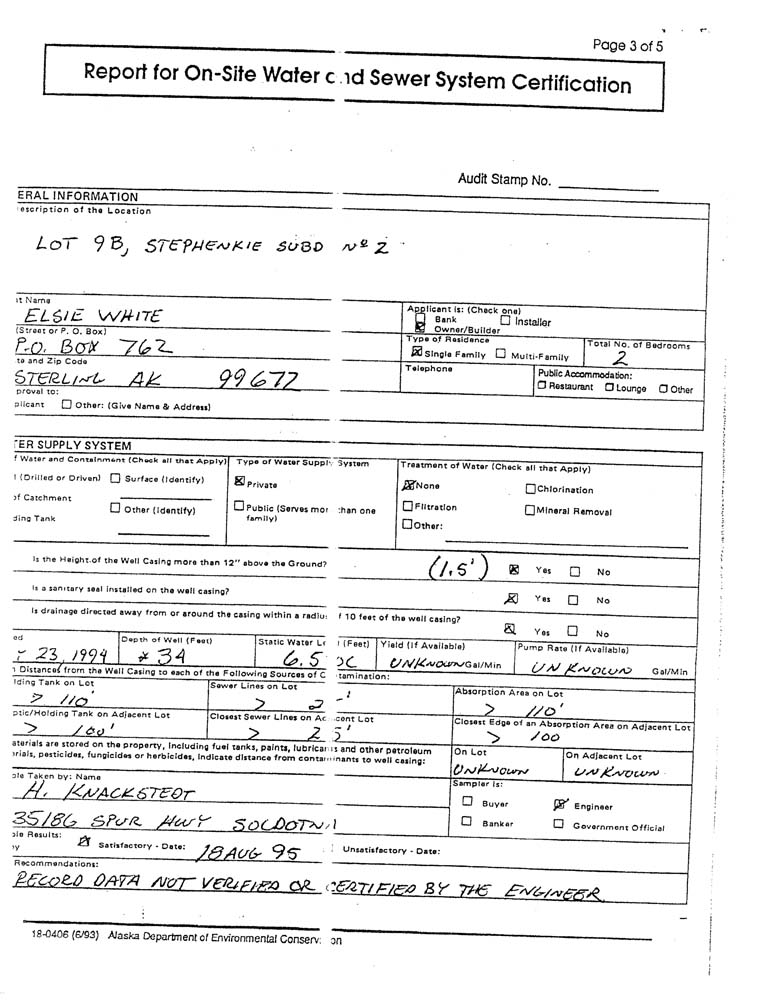 Page 3 of 5
Report for On-Site Water and Sewer System Certification
Audit Stamp No.
ERAL INFORMATION
escription of the Location
LOT 9B, STEPHENKIE SUBD Nº 2
Name
ELSIE WHITE
Applicant is: (Check one)
Bank Installer
Owner/Builder
(Street or P. O. Box)
P.O. BOX 762
Type of Residence
Single Family Multi-Family
Total No. of Bedrooms
2
te and Zip Code
STERLING AK 99672
Telephone
Public Accommodation:
Restaurant Lounge Other
proval to:
plicant Other: (Give Name & Address)
TER SUPPLY SYSTEM
f Water and Containment (Check all that Apply)
Type of Water Supply System
Treatment of Water (Check all that Apply)
l (Drilled or Driven) Surface (Identify)
Private
None Chlorination
of Catchment
Other (Identify)
Public (Serves mor than one family)
Filtration Mineral Removal
ding Tank
Other:
Is the Height of the Well Casing more than 12" above the Ground? (1.5') Yes No
Is a sanitary seal installed on the well casing? Yes No
Is drainage directed away from or around the casing within a radiu f 10 feet of the well casing? Yes No
ed
23, 1994
Depth of Well (Feet)
* 34
Static Water L (Feet)
6.5
Yield (If Available)
UNKNOWN Gal/Min
Pump Rate (If Available)
UNKNOWN Gal/Min
Distances from the Well Casing to each of the Following Sources of C tamination:
lding Tank on Lot
> 110'
Sewer Lines on Lot
>
Absorption Area on Lot
> 110'
ptic/Holding Tank on Adjacent Lot
> 100'
Closest Sewer Lines on Adjacent Lot
> 25'
Closest Edge of an Absorption Area on Adjacent Lot
> 100
aterials are stored on the property, including fuel tanks, paints, lubricants and other petroleum
erials, pesticides, fungicides or herbicides, indicate distance from contaminants to well casing:
On Lot
UNKNOWN
On Adjacent Lot
UNKNOWN
ple Taken by: Name
H. KNACKSTEDT
Sampler is:
Buyer Engineer
35186 SPUR HWY SOLDOTNA
Banker Government Official
ple Results:
Satisfactory - Date: 18 AUG 95
Unsatisfactory - Date:
Recommendations:
RECORD DATA NOT VERIFIED OR CERTIFIED BY THE ENGINEER
18-0406 (6/93) Alaska Department of Environmental Conserv on